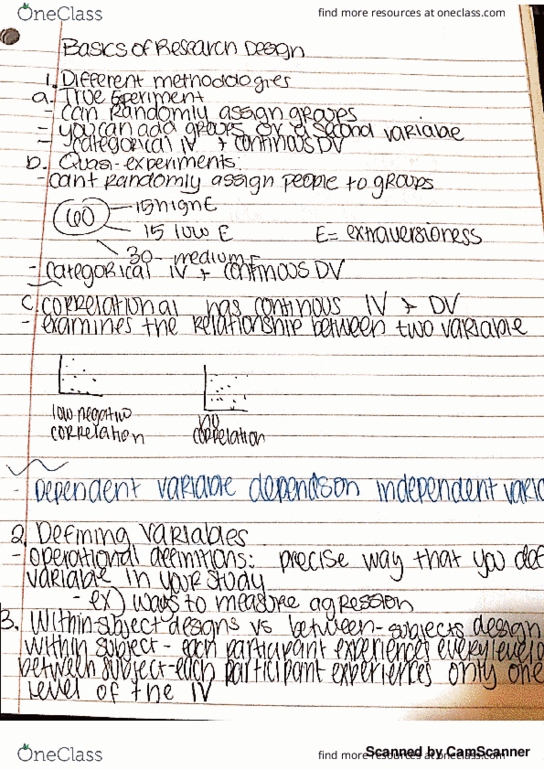 OneClass
find more resources at oneclass.com
Basics of Research Design
1. Different methodologies
a. True Experiment
- can randomly assign groups
- you can add groups or a second variable
- categorical IV + continous DV
b. Quasi-experiments:
- cant randomly assign people to groups
60
15 high E
15 low E
E= extraversioness
30- medium E
- categorical IV + continous DV
c. correlational has continous IV + DV
- examines the relationship between two variable
low negative
correlation
no
correlation
- Dependent variable depends on independent varia
2. Defining variables
- operational definitions: precise way that you def
variable in your study
- ex) ways to measure agression
3. Within-subject designs vs between-subjects design
within subject - each participant experiences every level o
between subject-each participant experiences only one
level of the IV
Scanned by CamScanner
OneClass
find more resources at oneclass.com